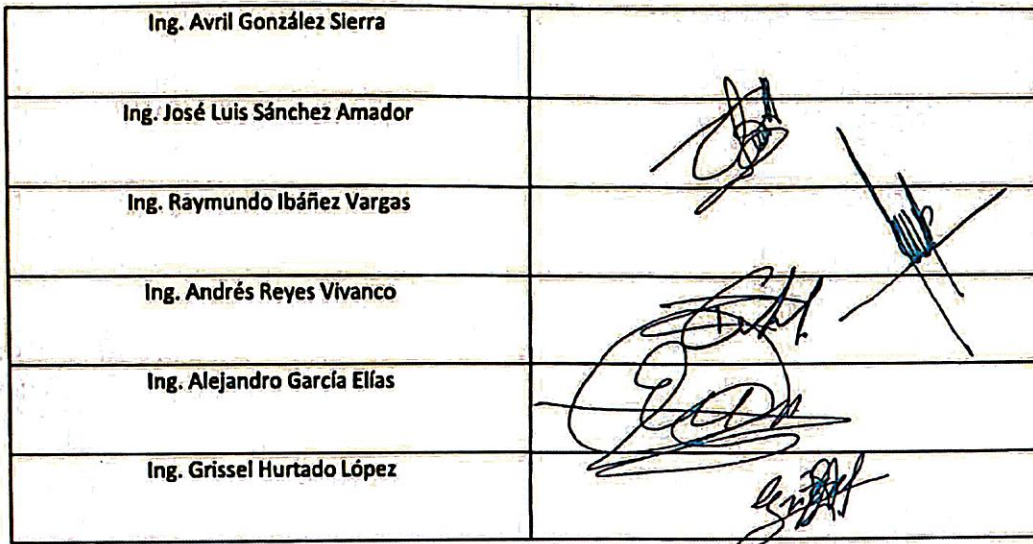 Ing. Avril González Sierra
Ing. José Luis Sánchez Amador
Ing. Raymundo Ibáñez Vargas
Ing. Andrés Reyes Vivanco
Ing. Alejandro García Elías
Ing. Grissel Hurtado López